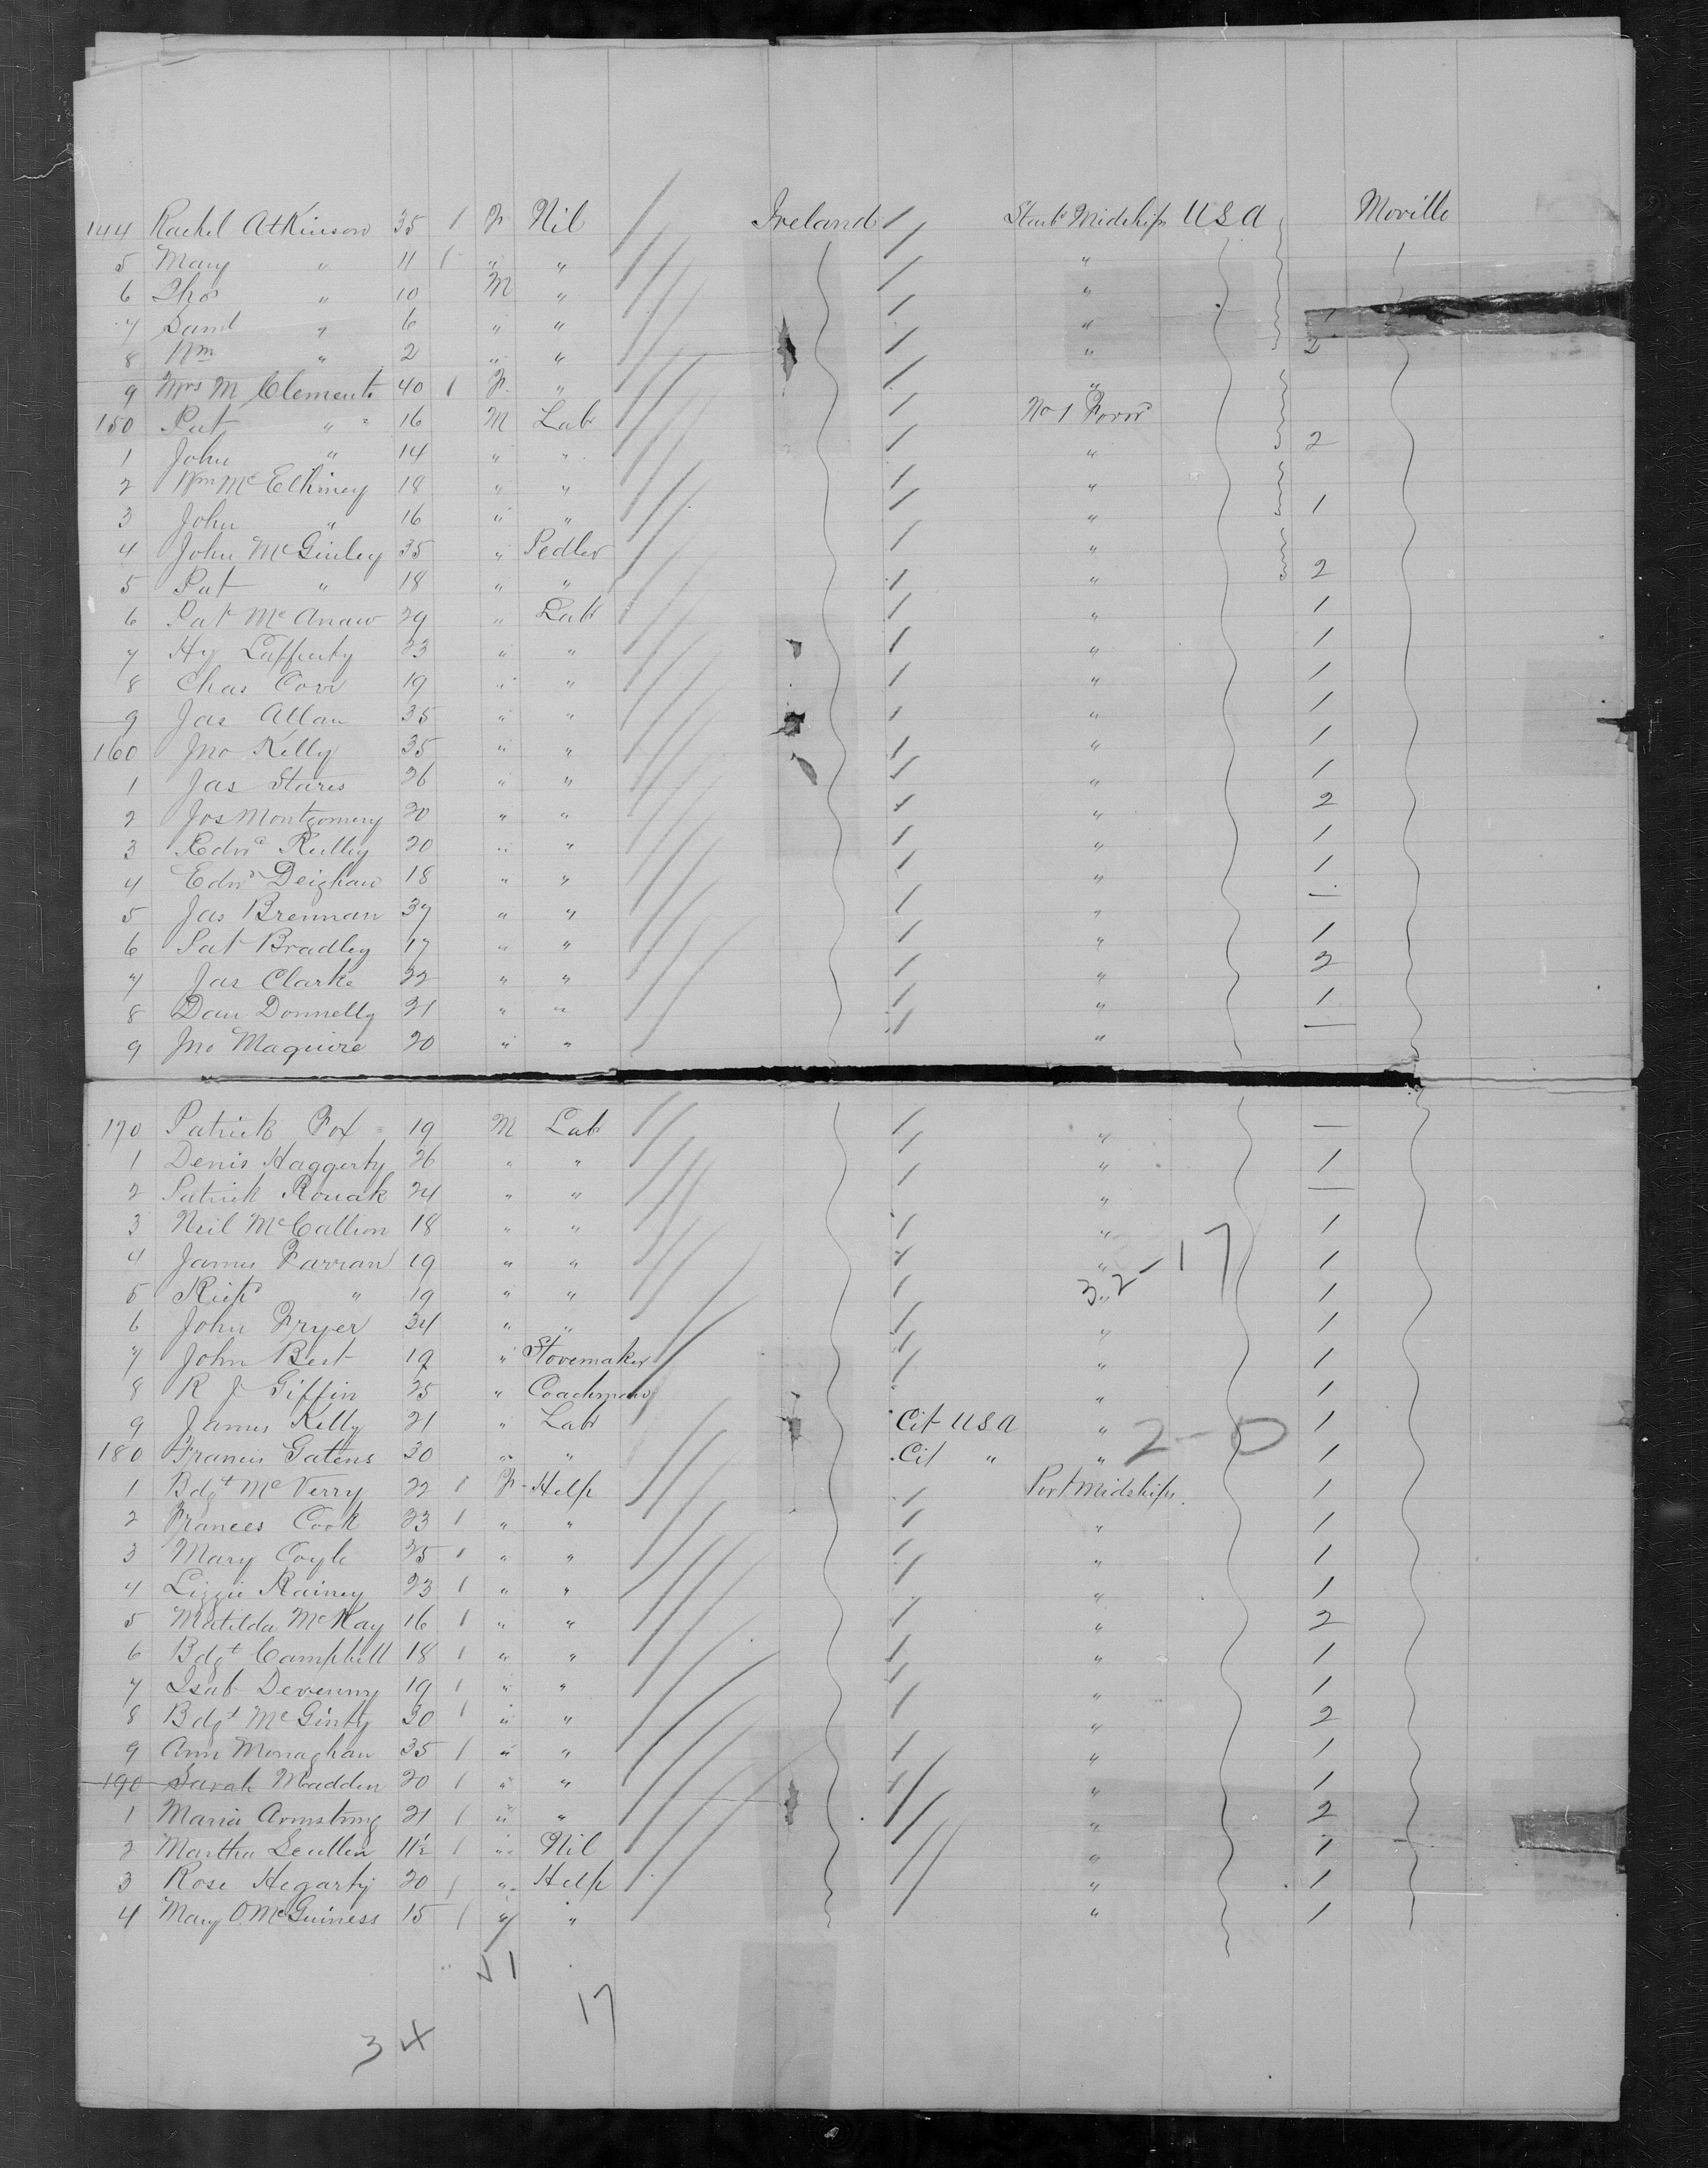 144 Rachel Atkinson 35 1 F Nil Ireland / Starb Midships USA Moville
5 Mary " 11 1 " " / "
6 Thos " 10 M " / "
7 Saml " 6 " " / " 1
8 Wm " 2 " " / " 2
9 Mrs M Clements 40 1 F " / "
150 Pat " 16 M Lab / No 1 Forwd
1 John " 14 " " / " 2
2 Wm McElhiney 18 " " / "
3 John " 16 " " / " 1
4 John McGinley 35 " Pedler / "
5 Pat " 18 " " / " 2
6 Pat McAnaw 29 " Lab / " 1
7 Hy Lafferty 23 " " / " 1
8 Chas Corr 19 " " / " 1
9 Jas Allan 35 " " / " 1
160 Jno Kelly 35 " " / " 1
1 Jas Stares 26 " " / " 1
2 Jos Montgomery 20 " " / " 2
3 Edwd Reilly 20 " " / " 1
4 Edwd Deighan 18 " " / " 1
5 Jas Brennan 37 " " / " —
6 Pat Bradley 17 " " / " 1
7 Jas Clarke 22 " " / " 2
8 Dan Donnelly 21 " " / " 1
9 Jno Maguire 20 " " / " —
170 Patrick Fox 19 M Lab / " —
1 Denis Haggerty 26 " " / " 1
2 Patrick 24 " " / " —
3 Neil McCallion 18 " " / " 1
4 James Farran 19 " " / " 1
5 Richd " 19 " " / " 1
32-17
6 John Fryer 34 " " / " 1
7 John Best 19 " Stovemaker / " 1
8 R J Giffin 25 " Coachman / " 1
9 James Kelly 21 " Lab Cit USA " 1
2-0
180 Francis Gatens 30 " " Cit " " 1
1 Bdgt McVerry 22 1 F Help / Port Midships 1
2 Frances Cook 23 1 " " / " 1
3 Mary Coyle 25 1 " " / " 1
4 Lizzie Rainey 23 1 " " / " 1
5 Matilda McKay 16 1 " " / " 2
6 Bdgt Campbell 18 1 " " / " 1
7 Isab Devenny 19 1 " " / " 1
8 Bdgt McGinty 30 1 " " / " 2
9 Ann Monaghan 35 1 " " / " 1
190 Sarah Madden 20 1 " " / " 1
1 Maria Armstrong 21 1 " " / " 2
2 Martha Scullen 11½ 1 " Nil / " 1
3 Rose Hegarty 20 1 " Help / " 1
4 Mary O. McGuiness 15 1 " " / " 1
51
17
34